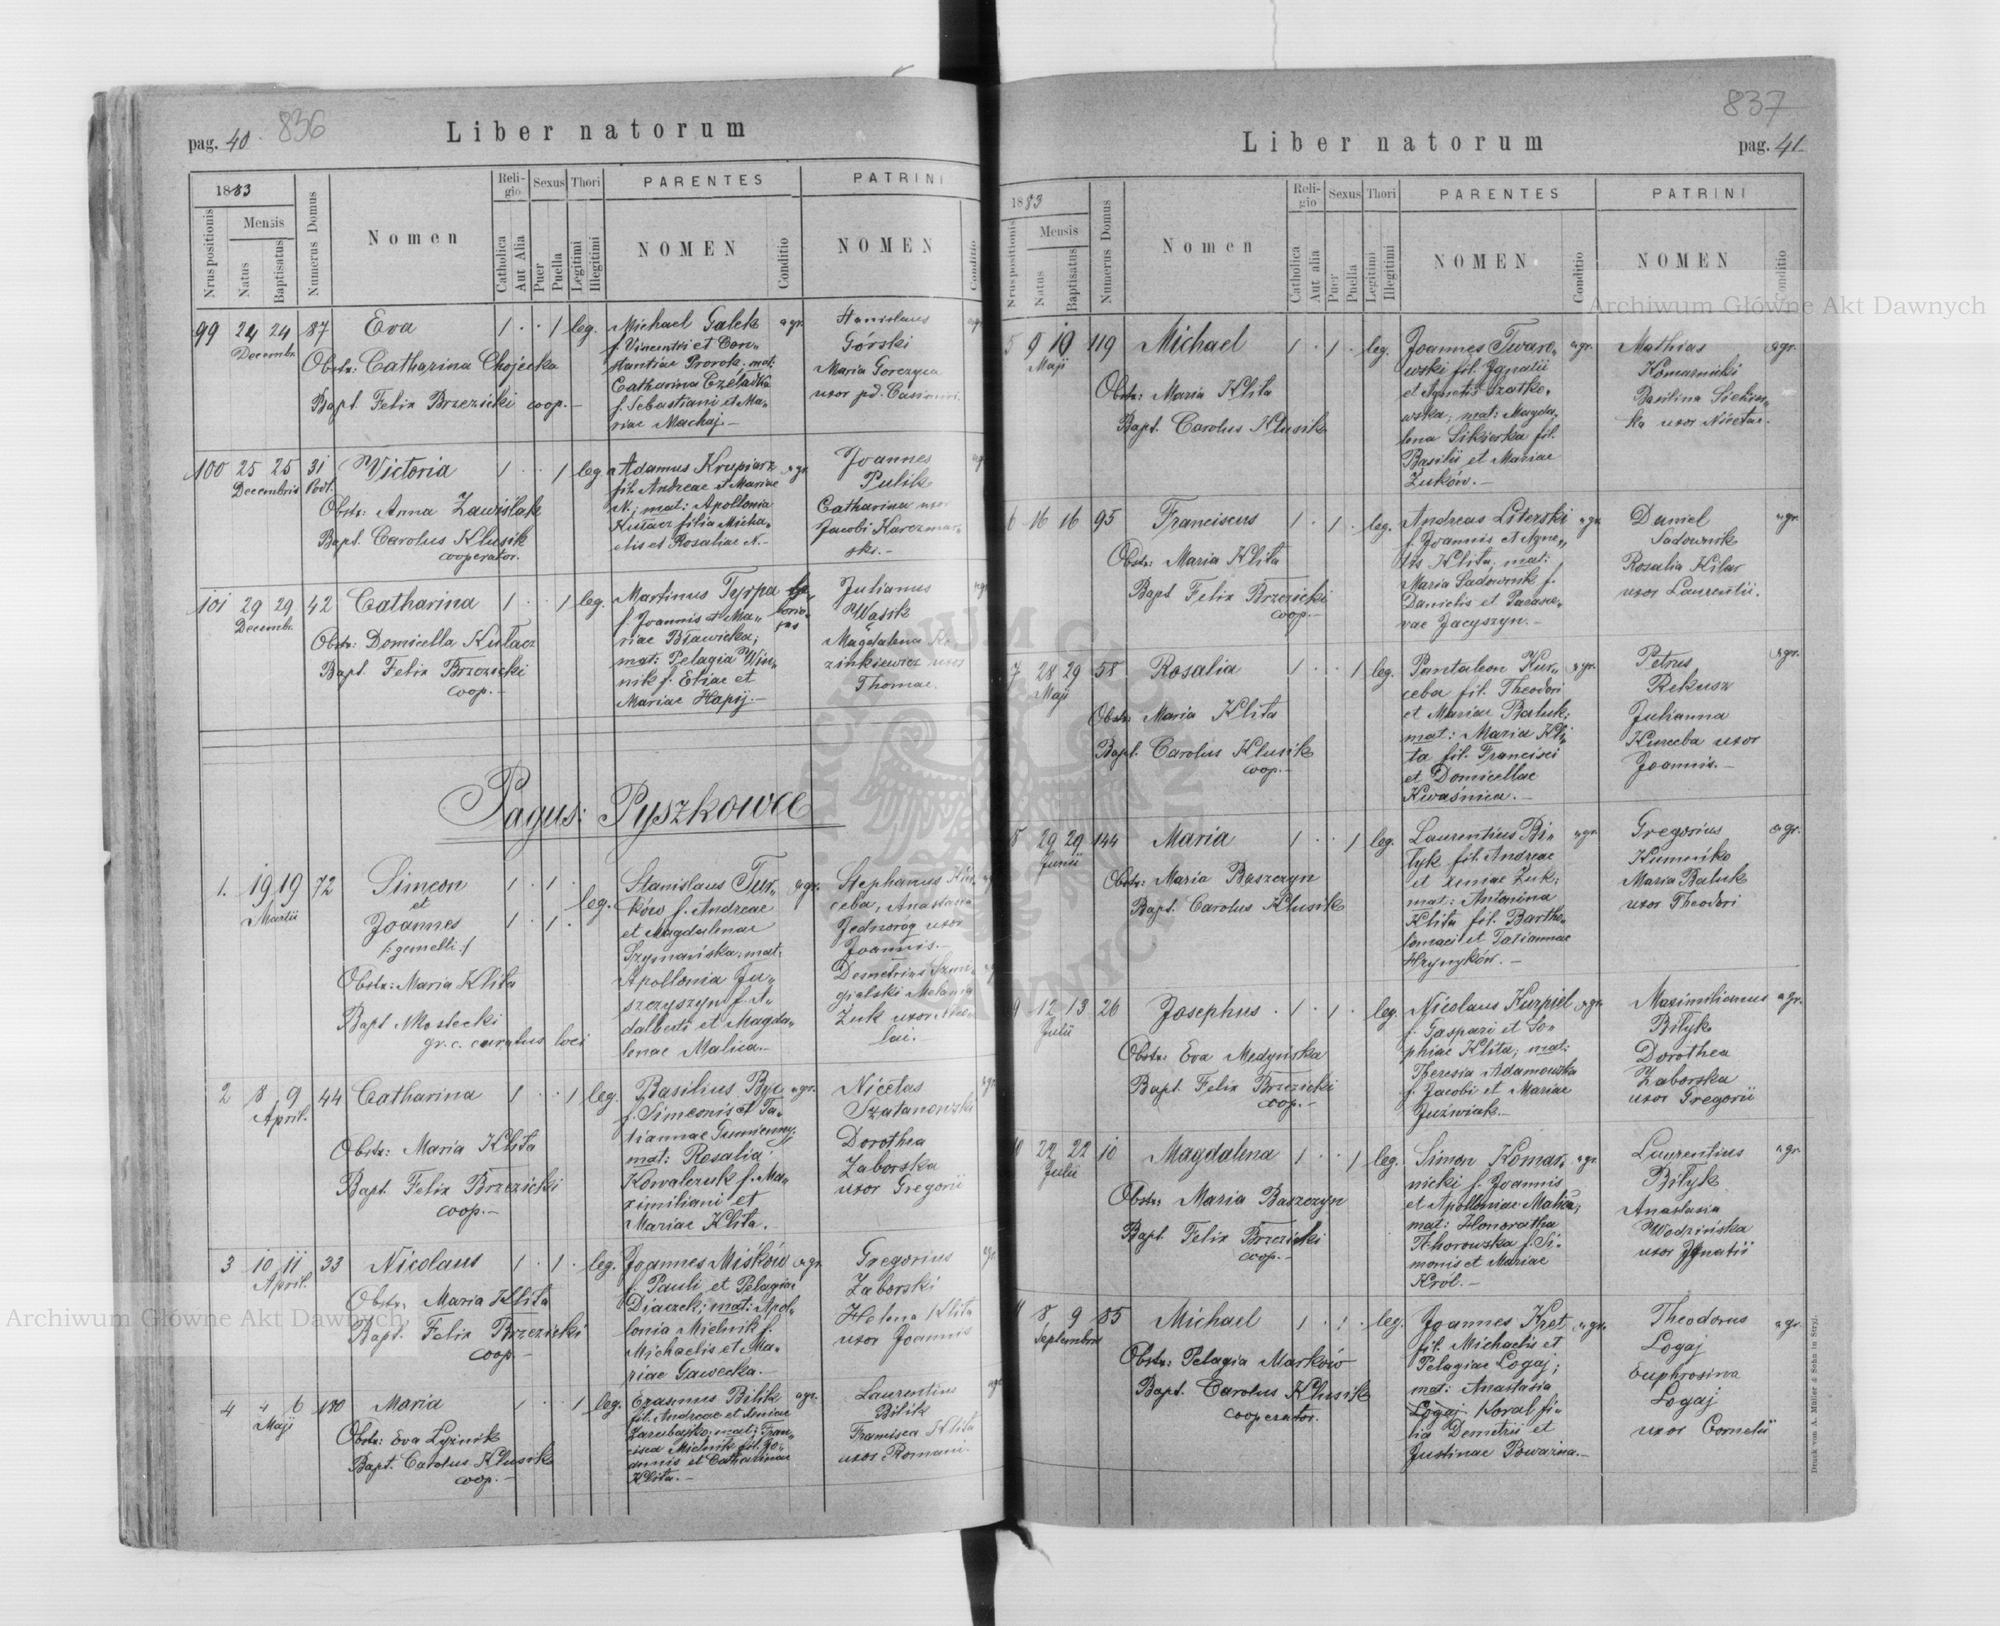 pag. 40. 836
Liber natorum
1883
Nrus positionis
Mensis
Natus
Baptisatus
Numerus Domus
Nomen
Reli-
gio
Catholica
Aut Alia
Sexus
Puer
Puella
Thori
Legitimi
Illegitimi
PARENTES
NOMEN
Conditio
PATRINI
NOMEN
Conditio
99 24 24 87 Eva 1 . . 1 leg. Michael Galek agr. Stanislaus agr.
Decembr. f. Vincentii et Con- Górski
Obstr: Catharina Chojecka stantiae Prorok; mat: Maria Gorczyca
Bapt. Felix Brzezicki coop. — Catharina Czeladka uxor pd. Casimiri.
f. Sebastiani et Ma-
riae Machaj. —
100 25 25 31 Victoria 1 . . 1 leg. Adamus Krupiarz agr. Joannes agr.
Decembris fil. Andreae et Mariae Pulik
Obstr: Anna Zawiślak N.; mat: Apollonia Catharina uxor
Bapt. Carolus Klusik Kułacz filia Micha- Jacobi Karczmar-
cooperator. elis et Rosaliae N. — ski. —
101 29 29 42 Catharina 1 . . 1 leg. Martinus Tyrpa Julianus agr.
Decembr. f. Joannis et Ma- Wąsik
Obstr: Domicella Kułacz riae Bławicka; Magdalena
Bapt. Felix Brzezicki mat: Pelagia Win- zinkiewicz uxor
coop. — nik f. Eliae et Thomae.
Mariae Hapij. —
Pagus: Pyszkowce
1. 19 19 72 Simeon 1 . 1 . leg. Stanislaus Tur- agr. Stephanus Kur-
Martii et ków f. Andreae ceba, Anastasia
Joannes 1 . 1 . et Magdalenae Jednoróg uxor
/: gemelli :/ Szymańska; mat. Joannis. —
Obstr: Maria Klita Apollonia Ja- Demetrius Szmi-
Bapt. Mostecki szczyszyn f. A- gielski Melania
gr. c. curatus loci dalberti et Magda- Żuk uxor Nico-
lenae Malica. — lai. —
2 8 9 44 Catharina 1 . . 1 leg. Basilius Byc agr. Nicetas agr.
April. f. Simeonis et Ta- Szatanowski
Obstr: Maria Klita tiannae Gumienny; Dorothea
Bapt. Felix Brzezicki mat: Rosalia Zaborska
coop. — Kowalczuk f. Ma- uxor Gregorii
ximiliani et
Mariae Klita. —
3 10 11 33 Nicolaus 1 . 1 . leg. Joannes Miśków agr. Gregorius agr.
April. f. Pauli et Pelagiae Zaborski
Obstr. Maria Klita Diaczek; mat: Apol- Helena Klita
Bapt. Felix Brzezicki lonia Mielnik f. uxor Joannis
coop. — Michaelis et Ma-
riae Gawecka. —
4 6 180 Maria 1 . . 1 leg. Erasmus Bilik agr. Laurentius agr.
Maji fil. Andreae et Xeniae Bilik
Obstr: Eva Lyźnik Zarubajko; mat: Fran- Francisca Klita
Bapt. Carolus Klusik cisca Mielnik fil. Jo- uxor Romani.
coop. — annis et Catharinae
Klita. —
837
Liber natorum
pag. 41
1883
Nrus positionis
Mensis
Natus
Baptisatus
Numerus Domus
Nomen
Reli-
gio
Catholica
Aut alia
Sexus
Puer
Puella
Thori
Legitimi
Illegitimi
PARENTES
NOMEN
Conditio
PATRINI
NOMEN
Conditio
5 9 10 119 Michael 1 . 1 . leg. Joannes Tward- agr. Mathias agr.
Maji wski fil. Ignatii Komarnicki
Obstr: Maria Klita et Agnetis Szatko- Basilina Siekier-
Bapt. Carolus Klusik wska; mat: Magda- ka uxor Nicetae.
lena Sikierka fil.
Basilii et Mariae
Żuków. —
6 16 16 95 Franciscus 1 . 1 . leg. Andreas Literski agr. Daniel agr.
f. Joannis et Agne- Sadownik
Obstr: Maria Klita tis Klita; mat: Rosalia Kilar
Bapt Felix Brzezicki Maria Sadownik f. uxor Laurentii.
coop. — Danielis et Parasce-
vae Jacyszyn. —
7 28 29 58 Rosalia 1 . . 1 leg. Pantaleon Kur- agr. Petrus agr.
Maji ceba fil. Theodori Rekusz
Obstr: Maria Klita et Mariae Baluk; Julianna
Bapt. Carolus Klusik mat: Maria Kli- Kurceba uxor
coop. — ta fil. Francisci Joannis. —
et Domicellae
Kwaśnica. —
8 29 29 144 Maria 1 . . 1 leg. Laurentius Bi- agr. Gregorius agr.
Junii łyk fil. Andreae Kumniko
Obstr: Maria Baszczyn et Xeniae Żuk; Maria Baluk
Bapt. Carolus Klusik mat: Antonina uxor Theodori
Klita fil. Bartho-
lomaei et Tatiannae
Hrynyków. —
9 12 13 26 Josephus . 1 . 1 . leg. Nicolaus Kurpiel agr. Maximilianus agr.
Julii f. Gaspari et So- Bityk
Obstr: Eva Medyńska phiae Klita; mat: Dorothea
Bapt. Felix Brzezicki Theresia Adamowska Zaborska
coop. — f. Jacobi et Mariae uxor Gregorii
Juźwiak. —
10 22 22 10 Magdalena 1 . . 1 leg. Simon Komar- agr. Laurentius agr.
Julii nicki f. Joannis Bityk
Obstr: Maria Baszczyn et Apolloniae Malica; Anastasia
Bapt. Felix Brzezicki mat: Honoratha Wodzińska
coop. — Tkhorowska f. Si- uxor Ignatii
monis et Mariae
Krol. —
11 8 9 85 Michael 1 . 1 . leg. Joannes Kret agr. Theodorus agr.
Septembris fil. Michaelis et Logaj
Obstr: Pelagia Marków Pelagiae Logaj; Euphrosina
Bapt. Carolus Klusik mat: Anastasia Logaj
cooperator. Logaj Koval fi- uxor Cornelii
lia Demetrii et
Justinae Powarina. —
Druck von A. Müller & Sohn in Stryj.
Archiwum Główne Akt Dawnych
Archiwum Główne Akt Dawnych